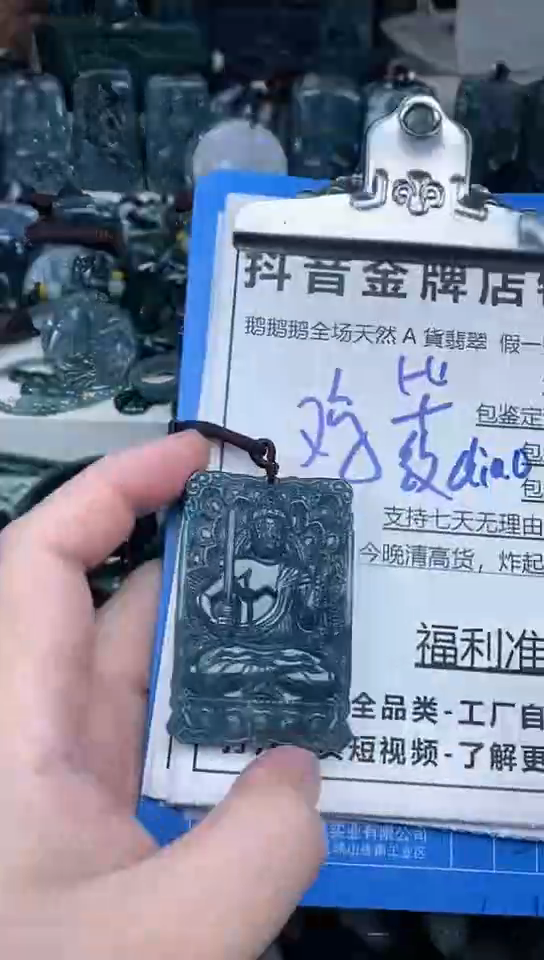 抖音金牌店
鹅鹅鹅全场天然A貨翡翠 假一
鸡
diao
包鉴定
包
包
支持七天无理由
今晚清高货，炸起
福利准
全品类-工厂自
短视频-了解更
实业有限公司